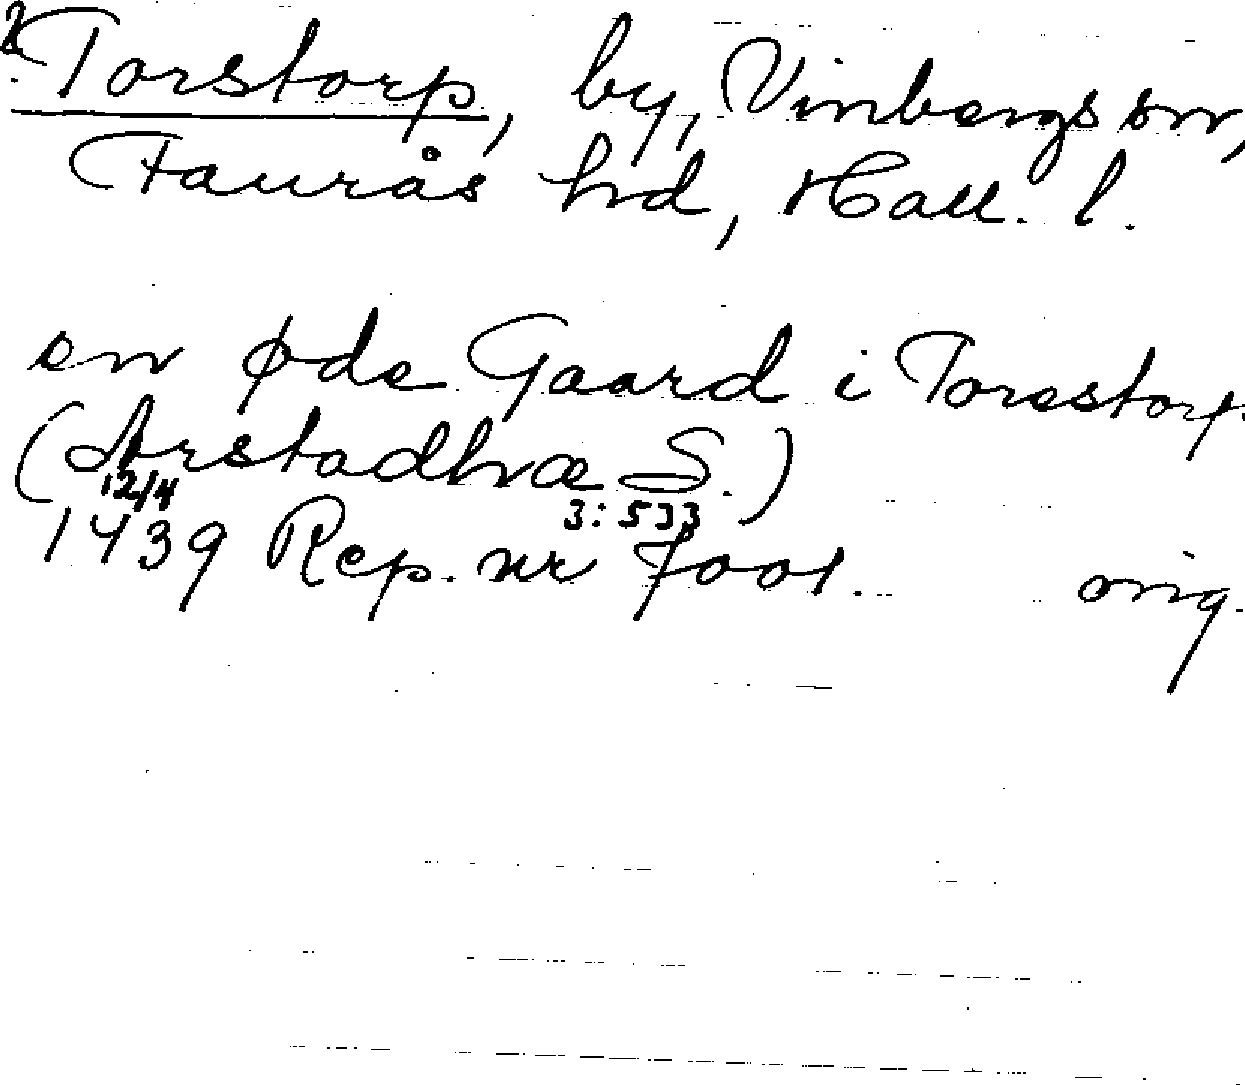 ? Torstorp, by, Vinbergs sn,
Faurås hd, Hall. l.
en øde Gaard i Torestorp
(Arstadhræ S.)
12/4 3: 533
1439 Rep. nr 7001. orig.